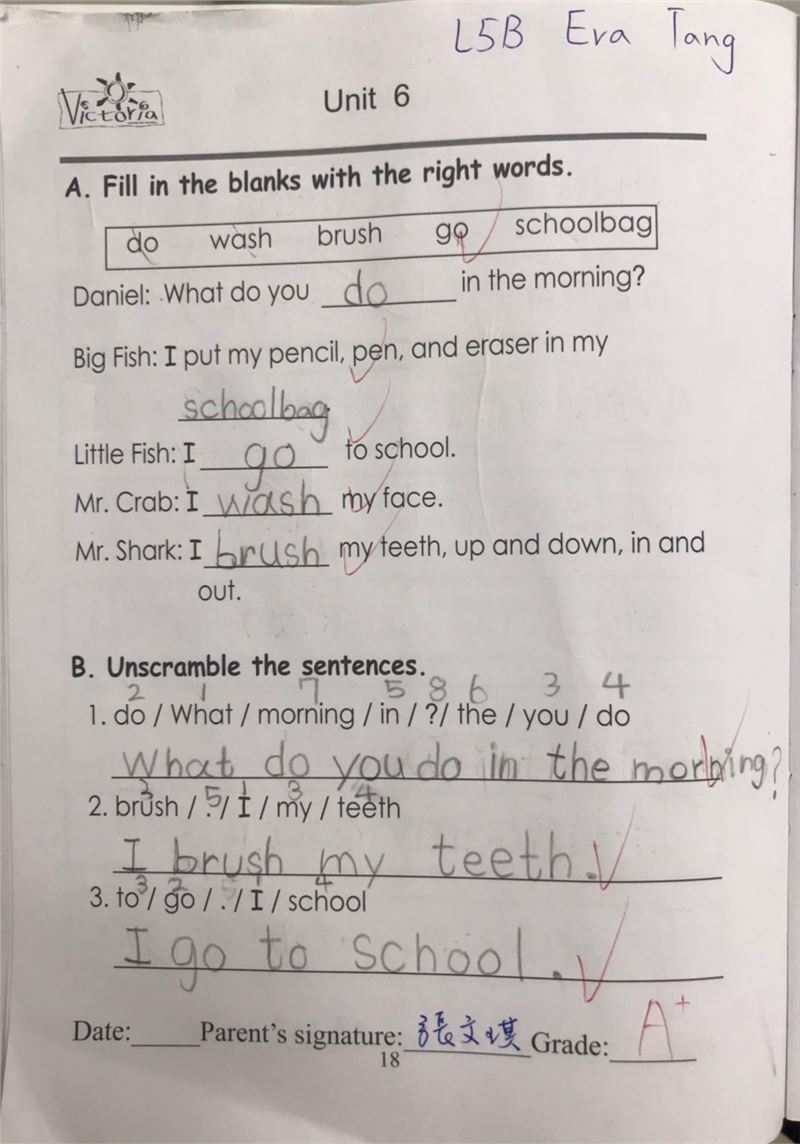 L5B Eva Tang
Victoria
Unit 6
A. Fill in the blanks with the right words.
do wash brush go schoolbag
Daniel: What do you do in the morning?
Big Fish: I put my pencil, pen, and eraser in my
schoolbag
Little Fish: I go to school.
Mr. Crab: I wash my face.
Mr. Shark: I brush my teeth, up and down, in and
out.
B. Unscramble the sentences.
2 1 7 5 8 6 3 4
1. do / What / morning / in / ?/ the / you / do
What do you do in the morning?
2 5 1 3 4
2. brush / . / I / my / teeth
I brush my teeth.
3 2 5 1 4
3. to / go / . / I / school
I go to school.
Date: Parent's signature: 張文琪 Grade: A+
18